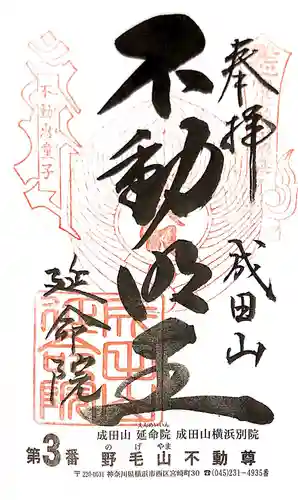 奉拝
成田山
不動明王
延命院
不動岩童子
成田山 延命院 成田山横浜別院
えんめいいん
第3番 野毛山不動尊
のげ やま
〒220-0031 神奈川県横浜市西区宮崎町30 ☎(045)231-4935番